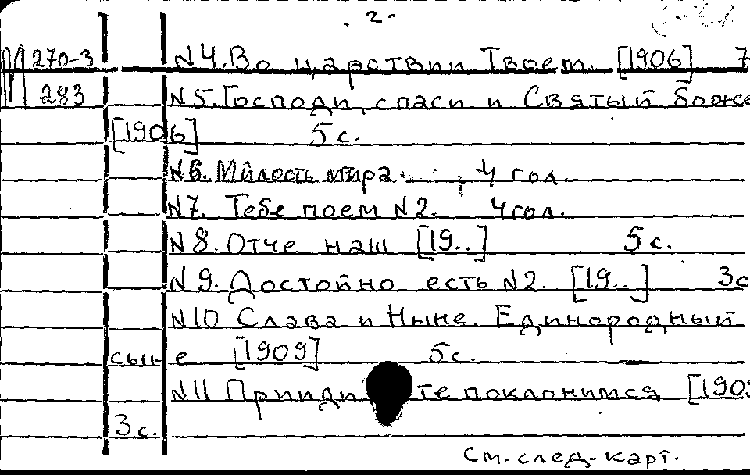 - 2 -
М 270-3 N 4. Во царствии Твоем. [1906] 7
283 N 5. Господи, спаси и Святый Боже
[1906] 5 с.
N 6. Милость мира. 4 гол.
N 7. Тебе поем N 2. 4 гол.
N 8. Отче наш [19..] 5 с.
N 9. Достойно есть N 2. [19..] 3 с
N 10 Слава и Ныне. Единородный
сыне [1909] 5 с.
N 11 Приидите поклонимся [190
3 с.
См. след. карт.